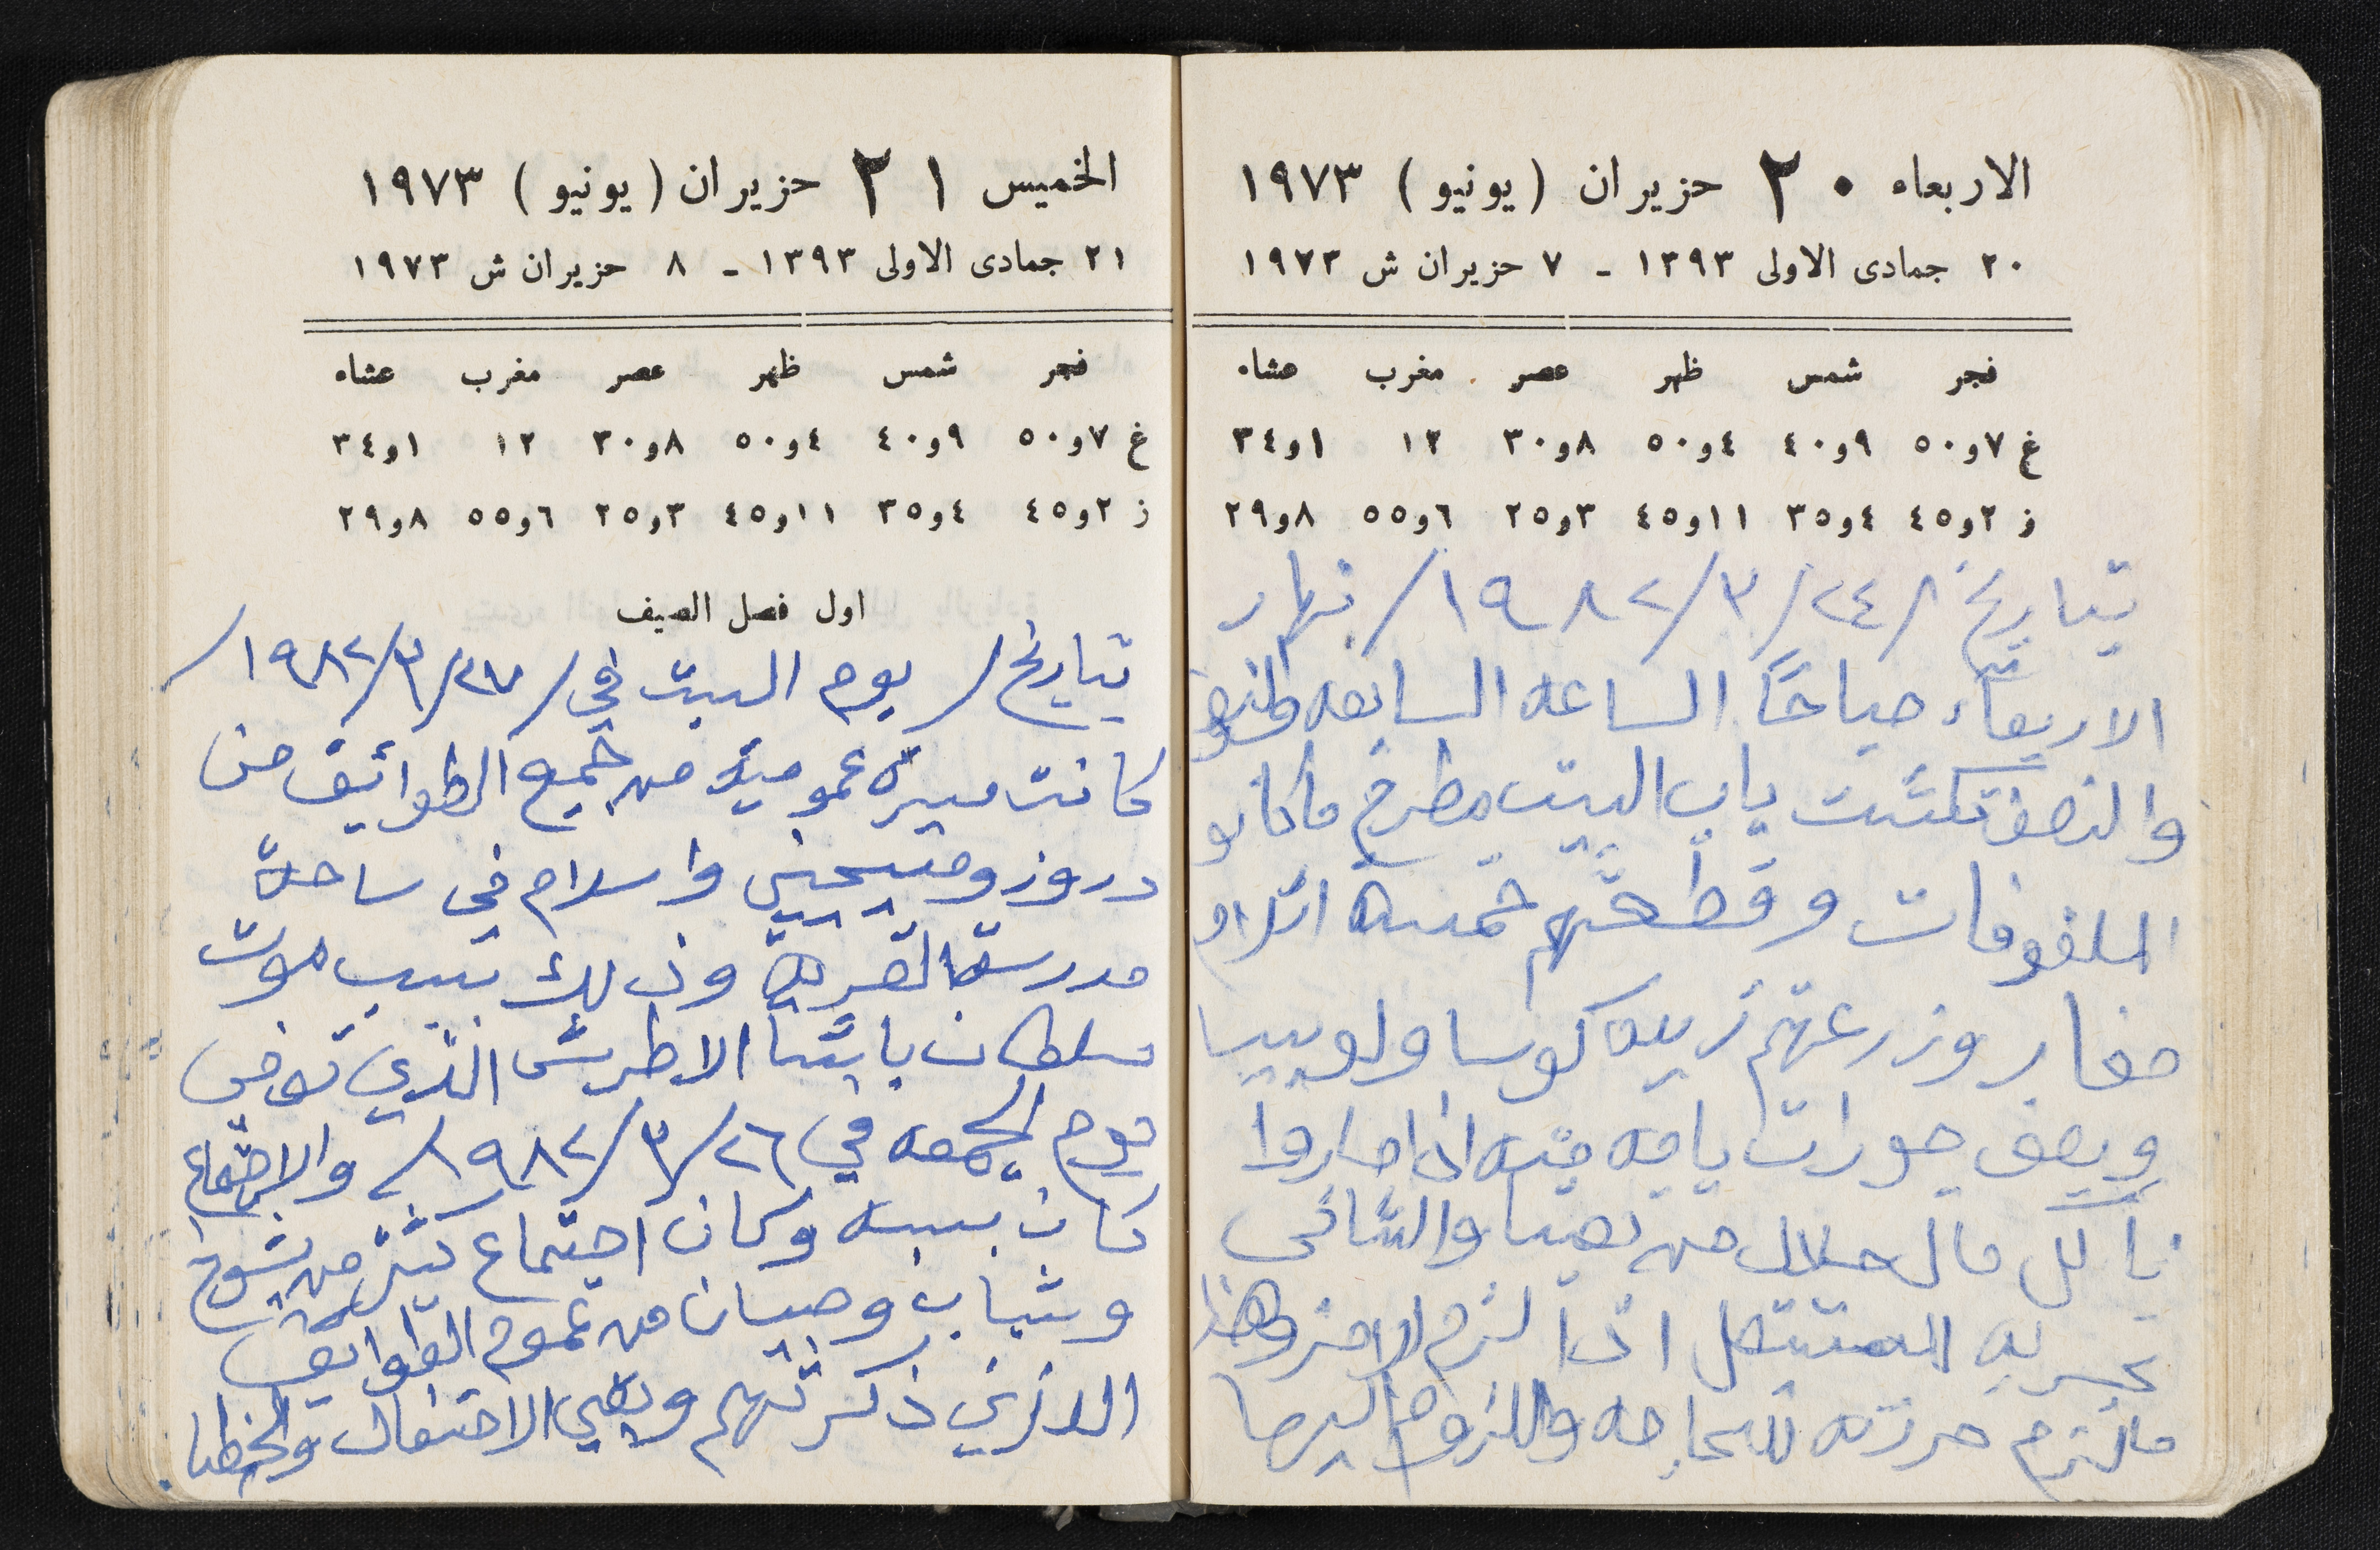 الاربعاء ٢٠ حزيران (يونيو) ١٩٧٣
٢٠ جمادى الاولى ١٣٩٣ - ٧ حزيران ش ١٩٧٣
فجر شمس ظهر عصر مغرب عشاء
غ ٧و٥٠ ٩و٤٠ ٤و٥٠ ٨و٣٠ ١٢ ١و٣٤
ز ٢و٤٥ ٤و٣٥ ١١و٤٥ ٣و٢٥ ٦و٥٥ ٨و٢٩
بتاريخ / ٢٤/٣/١٩٨٢/ نهار
الاربعاء صباحاً الساعه السابعه
والنصف نكشت باب البيت مطرح ماكانو
الملفوفات وقطعتهم خمسه اتلام
صغار وزرعتهم زريعه كوسا ولوبيا
وبعض جورات باميه
ناكل مال حلال من تعبنا والثاني
تجربه للمستقبل اذا لزم الامر وهذا
مالزم حررته للحاجه واللزوم اليها
الخميس ٢١ حزيران (يونيو) ١٩٧٣
٢١ جمادى الاولى ١٣٩٣ - ٨ حزيران ش ١٩٧٣
فجر شمس ظهر عصر مغرب عشاء
غ ٧و٥٠ ٩و٤٠ ٤و٥٠ ٨و٣٠ ١٢ ١و٣٤
ز ٢و٤٥ ٤و٣٥ ١١و٤٥ ٣و٢٥ ٦و٥٥ ٨و٢٩
اول فصل الصيف
بتاريخ / يوم السبت في / ٢٧/٣/١٩٨٢/
كانت مسيره عموميه من جميع الطوائف من
دروز ومسيحيي واسلام في ساحة
مدرسة القريه وذلك بسبب موت
سلطان باشا الاطرش الذي توفى
يوم الجمعه في ٢٦/٣/١٩٨٢/ والاجتماع
كان بسببه وكان اجتماع كثير من شيوخ
وشباب وصبيان من عموم الطوايف
اللازين ذكرتهم وبقي الاحتفال والخطبا